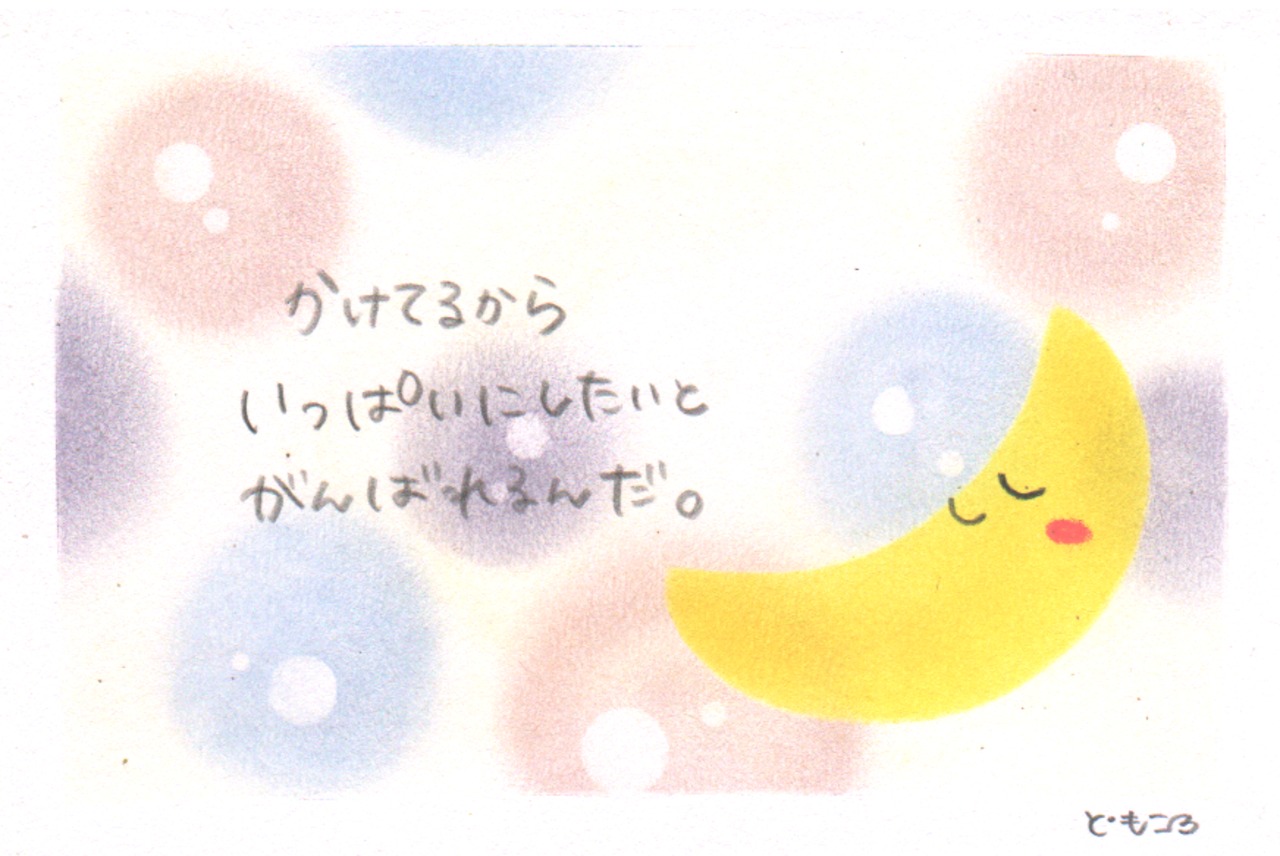 かけてるから
いっぱいにしたいと
がんばれるんだ。
ともころ